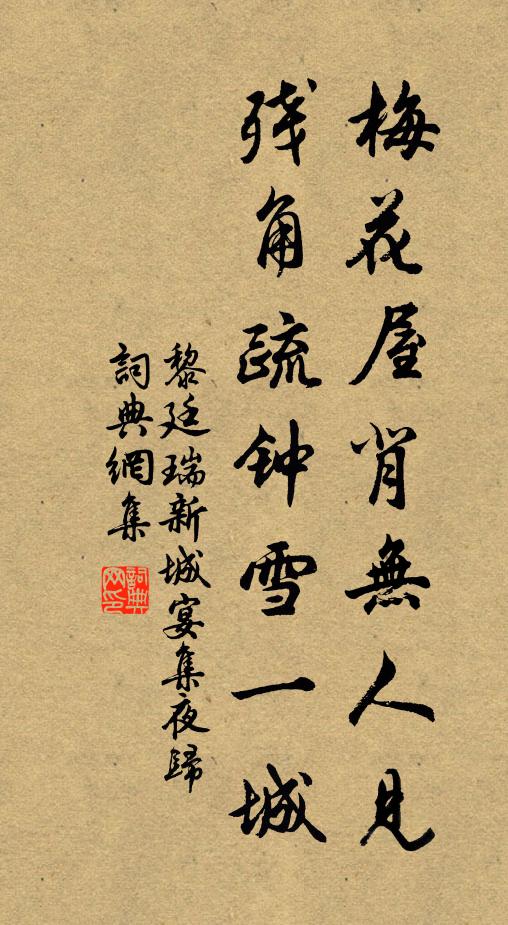 梅花屋背無人見
残角疏钟雪一城
黎廷瑞新城宴集夜歸
詞典網集
詞典
网印